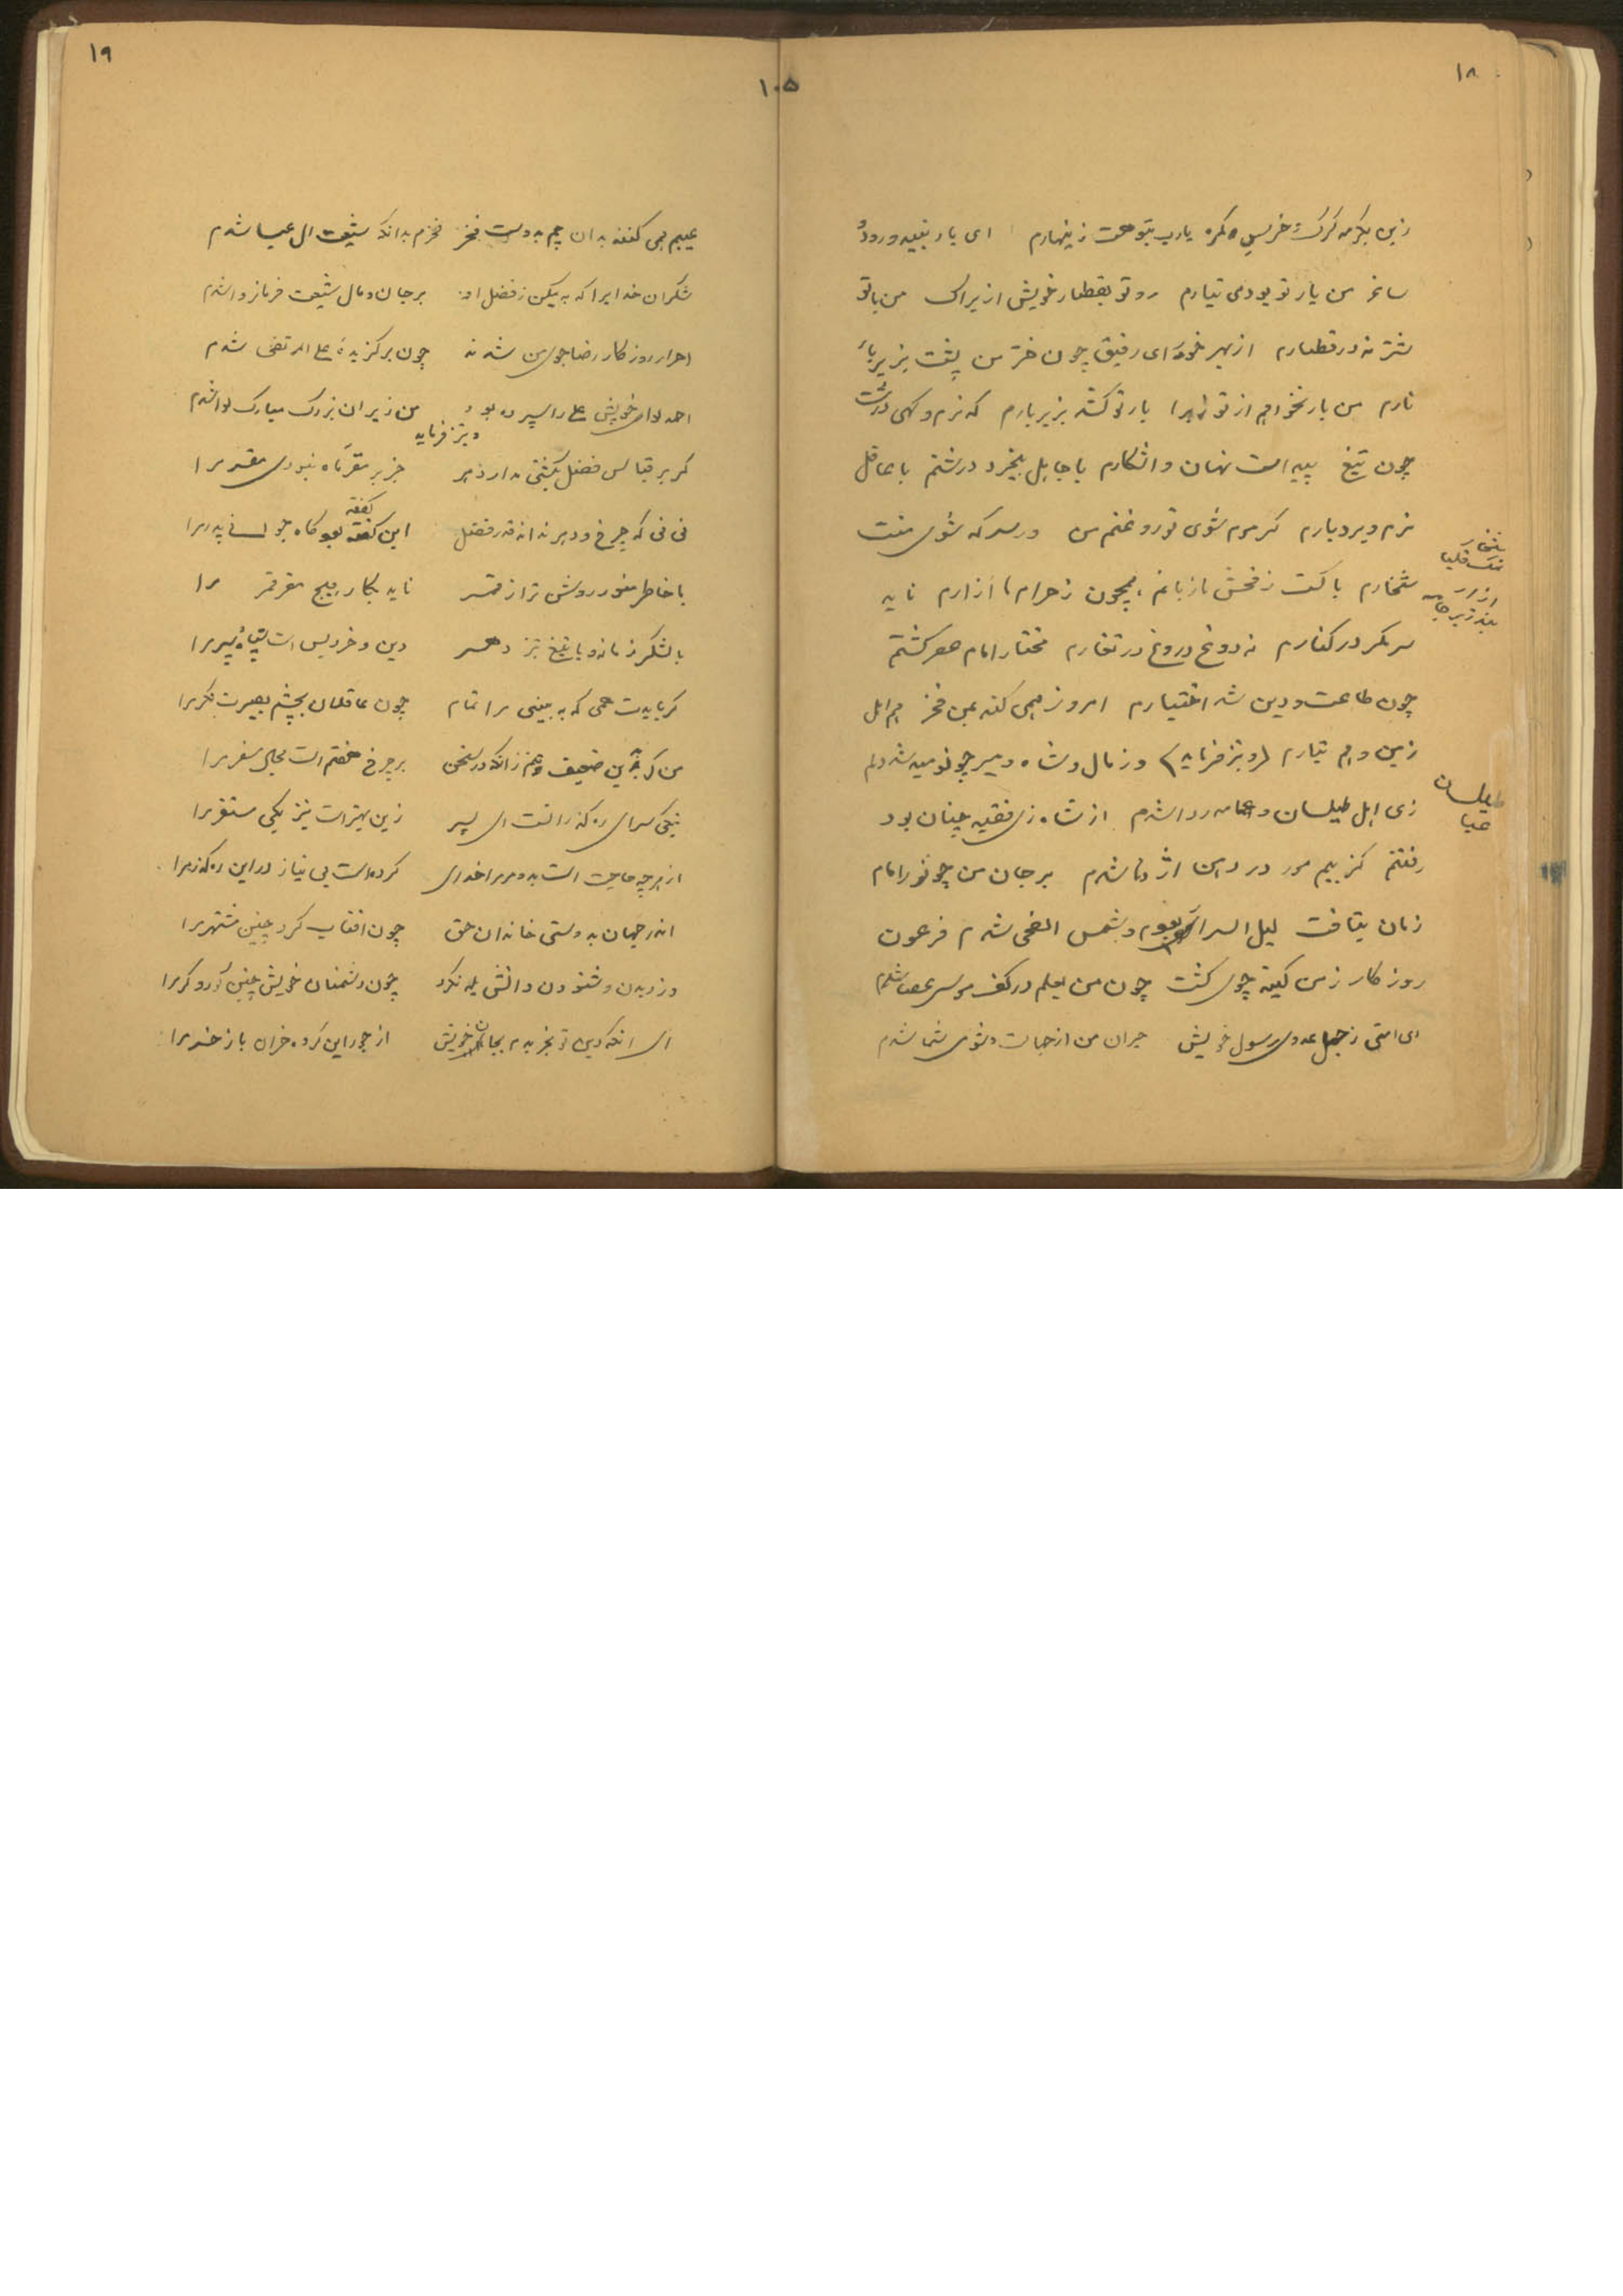 ۱۸
زین بیکرمه گرگ خریس گمره یارب بتو است زینهارم ای یار نبید و رود
ساغر من یار تو بودمی نیارم رو تو بقطار خویش ازیراک من با تو
شتر نه در قطارم از بهر خور ای رفیق چون خر من پشت بزیر بار
نارم من بار نخواهم از تو زیرا بار تو کشد بزیر بارم که نرم و گهی درشت
چون تیغ پیداست نهان و اشکارم با جاهل بیخرد درشتم با عاقل
نرم و بردبارم گر سرم شوی تو روغنم من ور سرکه شوی منت
شخارم پاکست ز فحش ها زبانم همچون ز حرام ها ازارم ناید
سر مکر در کنارم نه دوغ دروغ در تغارم مختار امام عصر گشتم
چون طاعت و دین شد اختیارم امروز همی کند بمن فخر هم اهل
زمین و هم تبارم (و نیز فرماید) وز مال و شاه و میر چو نومید شد دلم
زی اهل طیلسان و عمامه ردا شدم از شاه زی فقیه چنان بود
رفتنم کز بیم مور در دهن اژدها شدم بر جان من چو نور امام
زمان بتافت لیل السرار بودم و شمس الضحی شدم فرعون
روزگار ز من کینه جوی گشت چون من بعلم در کف موسی عصا شدم
ای امتی ز جهل عدوی رسول خویش حیران من از جهالت و شومی شما شدم
شخار
نمک قلیا
ازار
بند زیر جامه
طیلسان
عبا
۱۰۵
۱۹
عیبم همی کنند بدان چم بدوست فخر فخرم بدانکه شیعت ال عبا شدم
شکر ان خدایرا که به یمکن ز فضل او بر جان و مال شیعت فرمانروا شدم
احرار روزکار رضا جوی من شدند چون بر گزیده علی المرتضی شدم
احمد لوای خویش علی را سپرده بود من زیر ان بزرک مبارک لوا شدم
و نیز فرماید
گر بر قیاس فضل بگشتی مدار دهر جز بر مقر ماه نبودی مقر مرا
نی نی که چرخ و دهر ندانند قدر فضل این گفته بود گاه جوانی پدر مرا
گفته
با خاطر منور روشن تر از قمر ناید بکار هیچ مقر قمر مرا
با لشکر زمانه و با تیغ تیز دهر دین و خرد بس است سپاه و سپر مرا
گر بایدت همی که به بینی مرا تمام چون عاقلان بچشم بصیرت نگر مرا
منکر بدین ضعیف تنم زانکه در سخن بر چرخ هفتم است مجال سفر مرا
نیکی سرای ره گذر انست ای پسر زین بهتر است نیز یکی مستقر مرا
از هر چه حاجت است بدو مر مرا خدای کرده است بی نیاز در این ره گذر مرا
اندر جهان بدوستی خاندان حق چون افتاب کرد چنین مشتهر مرا
وز دیدن و شنودن دانش یله نکرد چون دشمنان خویش چنین کور و کر مرا
ای انکه دین تو بخریدم بجان خویش از جور این گروه خران باز خر مرا